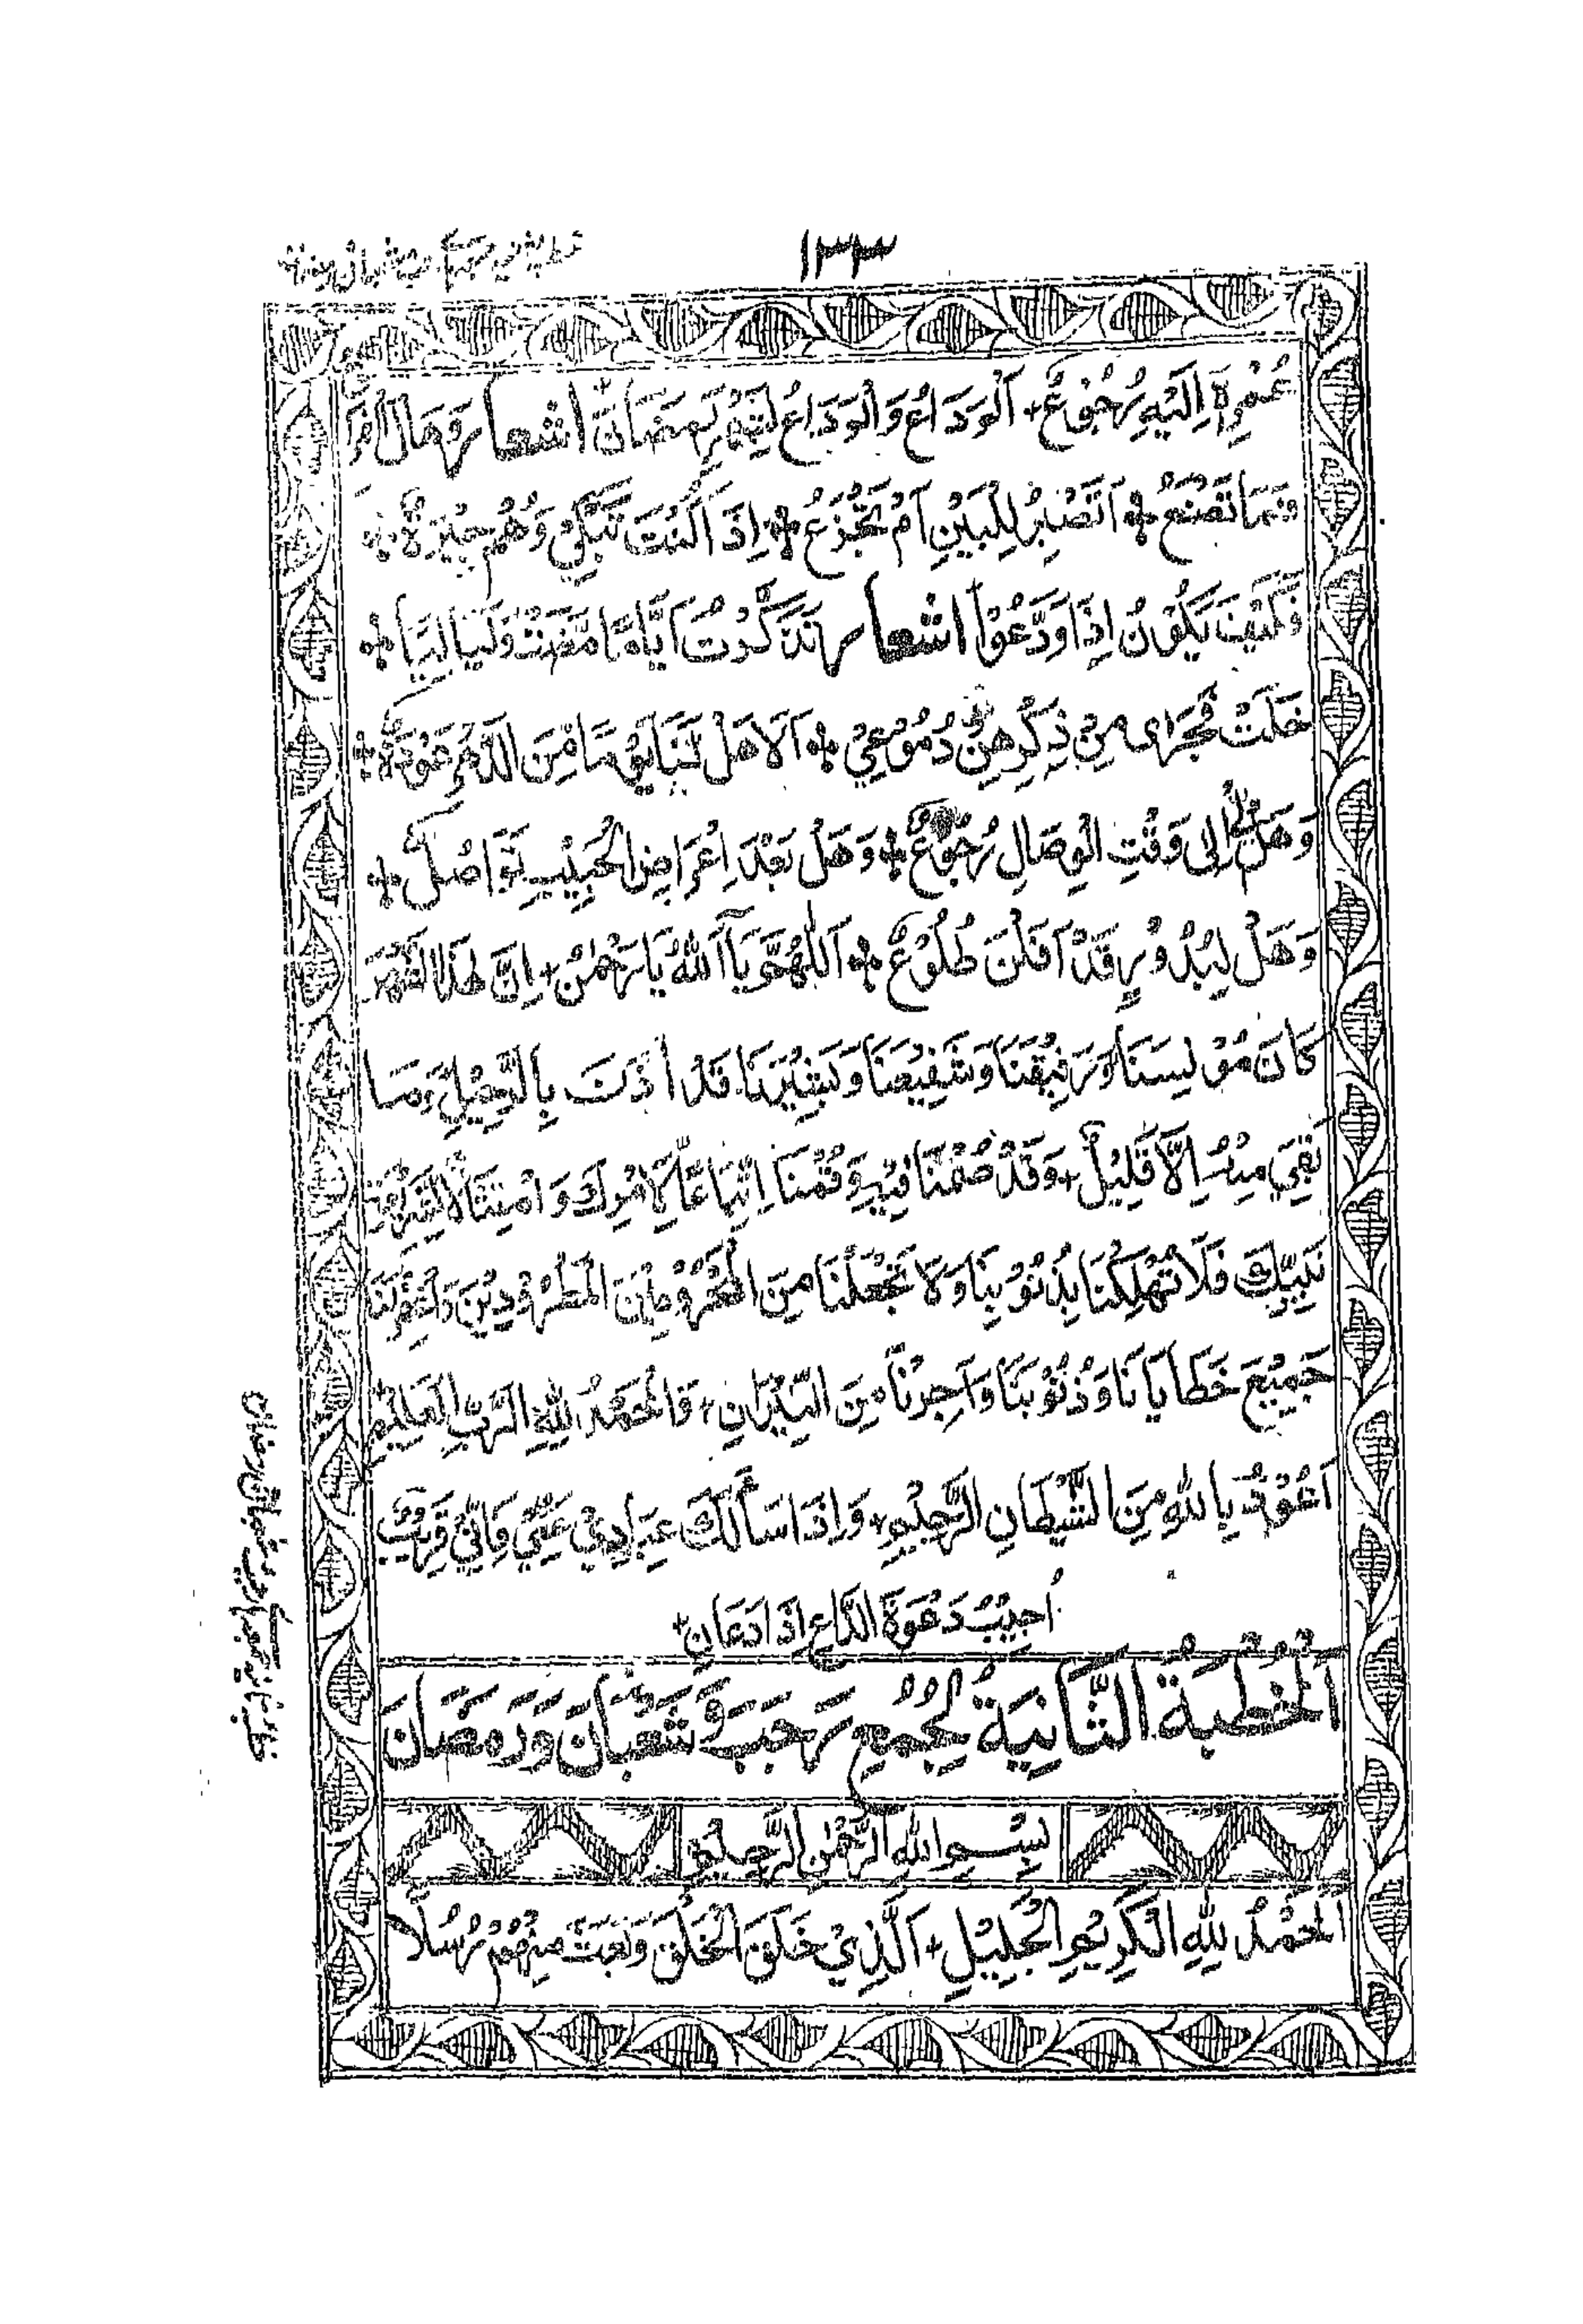 ١٣٣
عُمْرِهٖ اِلَيْهِ رُجُوْعٌ + اَلْوَدَاعُ وَالْوَدَاعُ لِشَهْرِ رَمَضَانَ اشعار
فَمَا تَصْنَعُ ۞ اَتَصْبِرُ لِلْبَيْنِ اَمْ تَجْزَعُ ۞ اِذَا كُنْتَ تَبْكِيْ وَهُمْ جِيْرَةٌ ۞
فَكَيْفَ يَكُوْنُ اِذَا وَدَّعُوْا اشعار تَذَكَّرْتُ اَيَّامًا مَّضَتْ وَلَيَالِيَا ۞
خَلَتْ فَجَرٰى مِنْ ذِكْرِهِنَّ دُمُوْعِيْ ۞ اَلَا هَلْ لَنَا يَوْمًا مِّنَ الدَّهْرِ عَوْدَةٌ ۞
وَهَلْ لِيْ اِلٰى وَقْتِ الْوِصَالِ رُجُوْعٌ ۞ وَهَلْ بَعْدَ اِعْرَاضِ الْحَبِيْبِ تَوَاصُلٌ ۞
وَهَلْ لِبُدُوْرٍ قَدْ اَفَلْنَ طُلُوْعٌ ۞ اَللّٰهُمَّ يَا اَللّٰهُ يَا رَحْمٰنُ + اِنَّ هٰذَا الشَّهْرَ
كَانَ مُوْنِسَنَا وَرَفِيْقَنَا وَشَفِيْعَنَا وَبَشِيْرَنَا قَدْ اٰذَنَتْ بِالرَّحِيْلِ وَمَا
بَقِيَ مِنْهُ اِلَّا قَلِيْلٌ + وَقَدْ صُمْنَا فِيْهِ وَقُمْنَا اِتِّبَاعًا لِاَمْرِكَ وَامْتِثَالًا لِشَرِيْعَةِ
نَبِيِّكَ فَلَا تُهْلِكْنَا بِذُنُوْبِنَا وَلَا تَجْعَلْنَا مِنَ الْمَحْرُوْمِيْنَ الْمَطْرُوْدِيْنَ وَاغْفِرْلَنَا
جَمِيْعَ خَطَايَانَا وَذُنُوْبَنَا وَاَجِرْنَا مِنَ النِّيْرَانِ + وَالْحَمْدُ لِلّٰهِ الرَّبِّ الْعَلِيْمِ
اَعُوْذُ بِاللّٰهِ مِنَ الشَّيْطَانِ الرَّجِيْمِ + وَاِذَا سَاَلَكَ عِبَادِيْ عَنِّيْ فَاِنِّيْ قَرِيْبٌ
اُجِيْبُ دَعْوَةَ الدَّاعِ اِذَا دَعَانِ +
اَلْخُطْبَةُ الثَّانِيَةُ لِجُمَعِ رَجَبَ وَشَعْبَانَ وَرَمَضَانَ
بِسْمِ اللّٰهِ الرَّحْمٰنِ الرَّحِيْمِ
اَلْحَمْدُ لِلّٰهِ الْكَرِيْمِ الْجَلِيْلِ + اَلَّذِيْ خَلَقَ الْخَلْقَ وَبَعَثَ مِنْهُمْ رُسُلًا